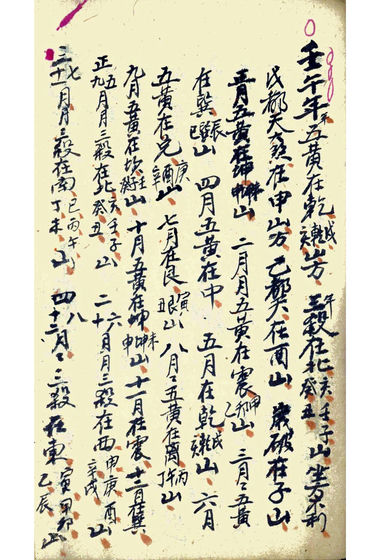 壬午年五黃在乾戌乾亥山方 三殺在北亥壬子癸丑山坐不利
戊都天煞在申山方 己都天在酉山 歲破在子山
正月五黃在坤未坤申山 二月五黃在震甲卯乙山 三月五黃
在巽辰巽巳山 四月五黃在中 五月在乾戌乾亥山 六月
五黃在兌庚酉辛山 七月在艮丑艮寅山 八月五黃在離丙午丁山
九月五黃在坎壬子癸山 十月五黃在坤未坤申山 十一月在震 十二月在巽
正五九月月三殺在北亥壬子癸丑山 二六十月月三殺在西申庚酉辛戌山
三七十一月月三殺在南巳丙午丁未山 四八十二月三殺在東寅甲卯乙辰山